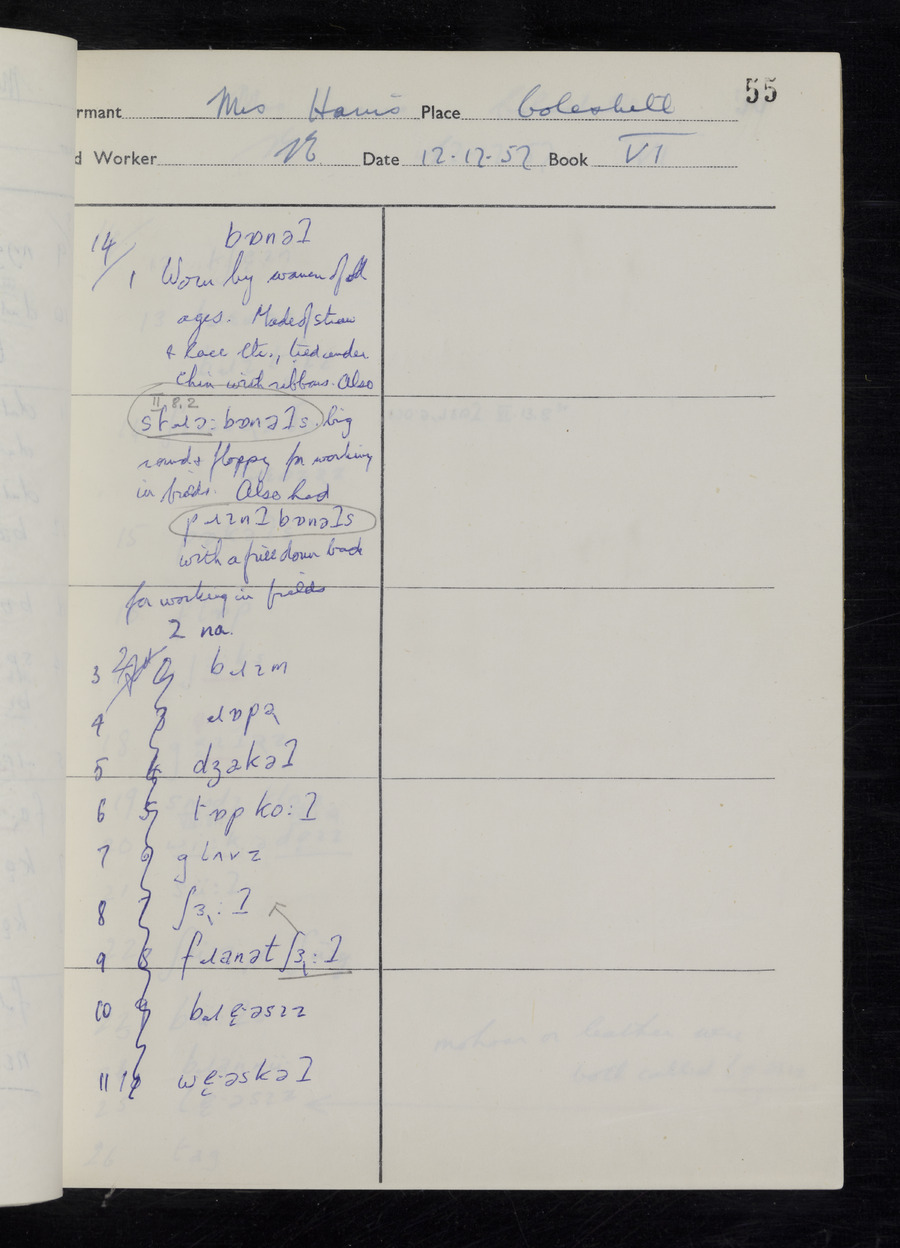 55
rmant Mrs Harris Place Coleshill
d Worker Date 12.12.57 Book VI
14/ bɒnəʔ
1 Worn by women of all
ages. Made of straw
& Lace etc., tied under
chin with ribbons. Also
II, 8.2
stɹɔ:bɒnəʔs. big
round & floppy for working
in fields. Also had
pɹɪnʔ bɒnəʔs
with a frill down back
for working in fields
2 na.
3 2 bɹɪm
4 3 ɹɒpə
5 4 dʒakəʔ
6 5 tɒpko:ʔ
7 6 glʌvz
8 7 ʃɜ:ʔ
9 8 flanətʃɜ:ʔ
10 9 bɹęəsɪz
11 10 węəskəʔ